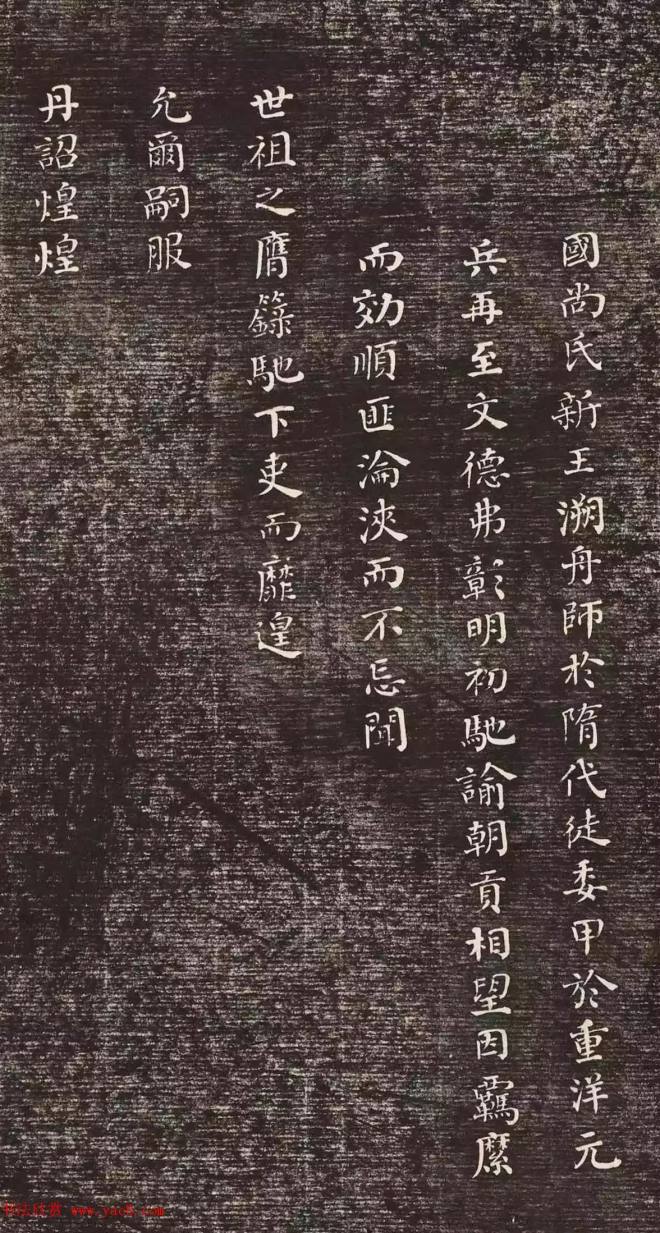 國尚氏新王溯舟師於隋代徒委甲於重洋元
兵再至文德弗彰明初馳諭朝貢相望因羈縻
而効順匪淪浹而不忘聞
世祖之膺籙馳下吏而靡遑
允爾嗣服
丹詔煌煌
书法欣赏 www.yac8.com